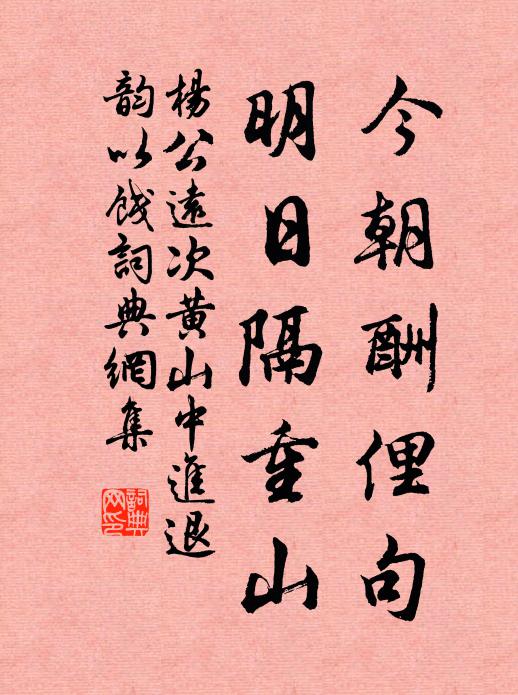 今朝酬俚句
明日隔重山
楊公遠次黄山中進退
韵以餞詞典網集
詞典網印